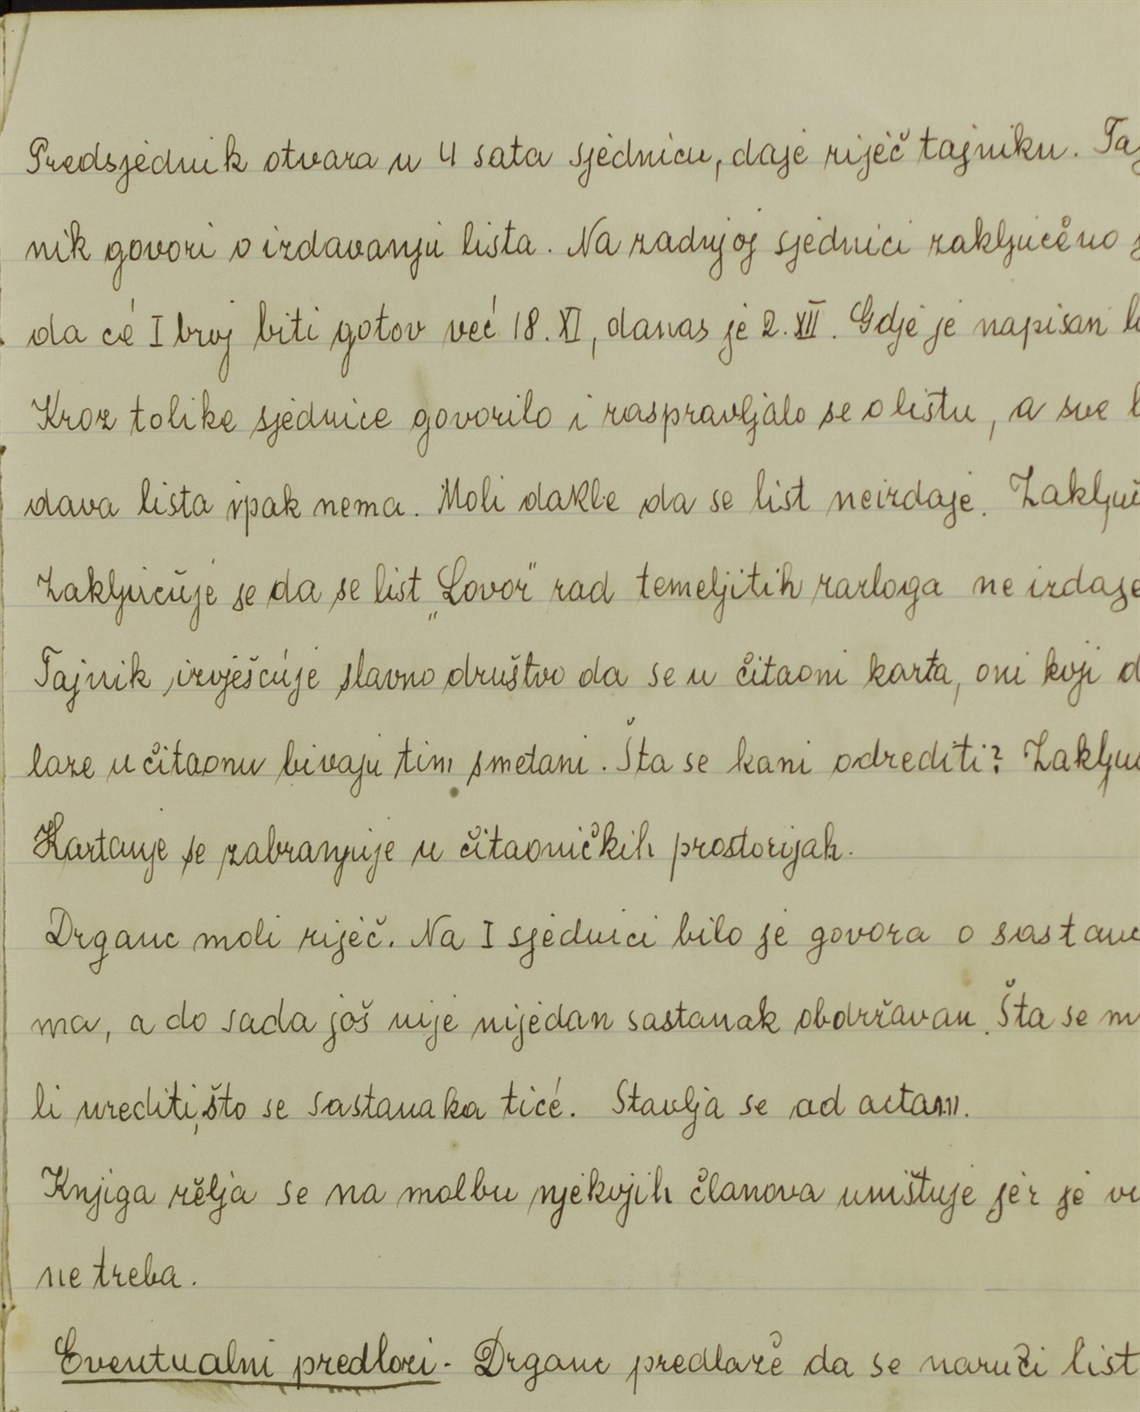 Predsjednik otvara u 4 sata sjednicu, daje riječ tajniku. Taj
nik govori o izdavanju lista. Na zadnjoj sjednici zaključeno j
da će I broj biti gotov već 18. XI, danas je 2. XII. Gdje je napisan li
Kroz tolike sjednice govorilo i raspravljalo se o listu, a sve l
dava lista ipak nema. Moli dakle da se list neizdaje. Zaključ
Zaključuje se da se list „Lovor" rad temeljitih razloga ne izdaje
Tajnik izvješćuje slavno društvo da se u čitaoni karta, oni koji d
laze u čitaonu bivaju tim smetani. Šta se kani odrediti? Zaklju
Kartanje se zabranjuje u čitaoničkih prostorijah.
Drganc moli riječ. Na I sjednici bilo je govora o sastanc
ma, a do sada još nije nijedan sastanak obdržavan. Šta se m
li urediti, što se sastanaka tiče. Stavlja se ad acta.
Knjiga želja se na molbu njekojih članova uništuje jer je vi
ne treba.
Eventualni predlozi - Drganc predlaže da se naruči list